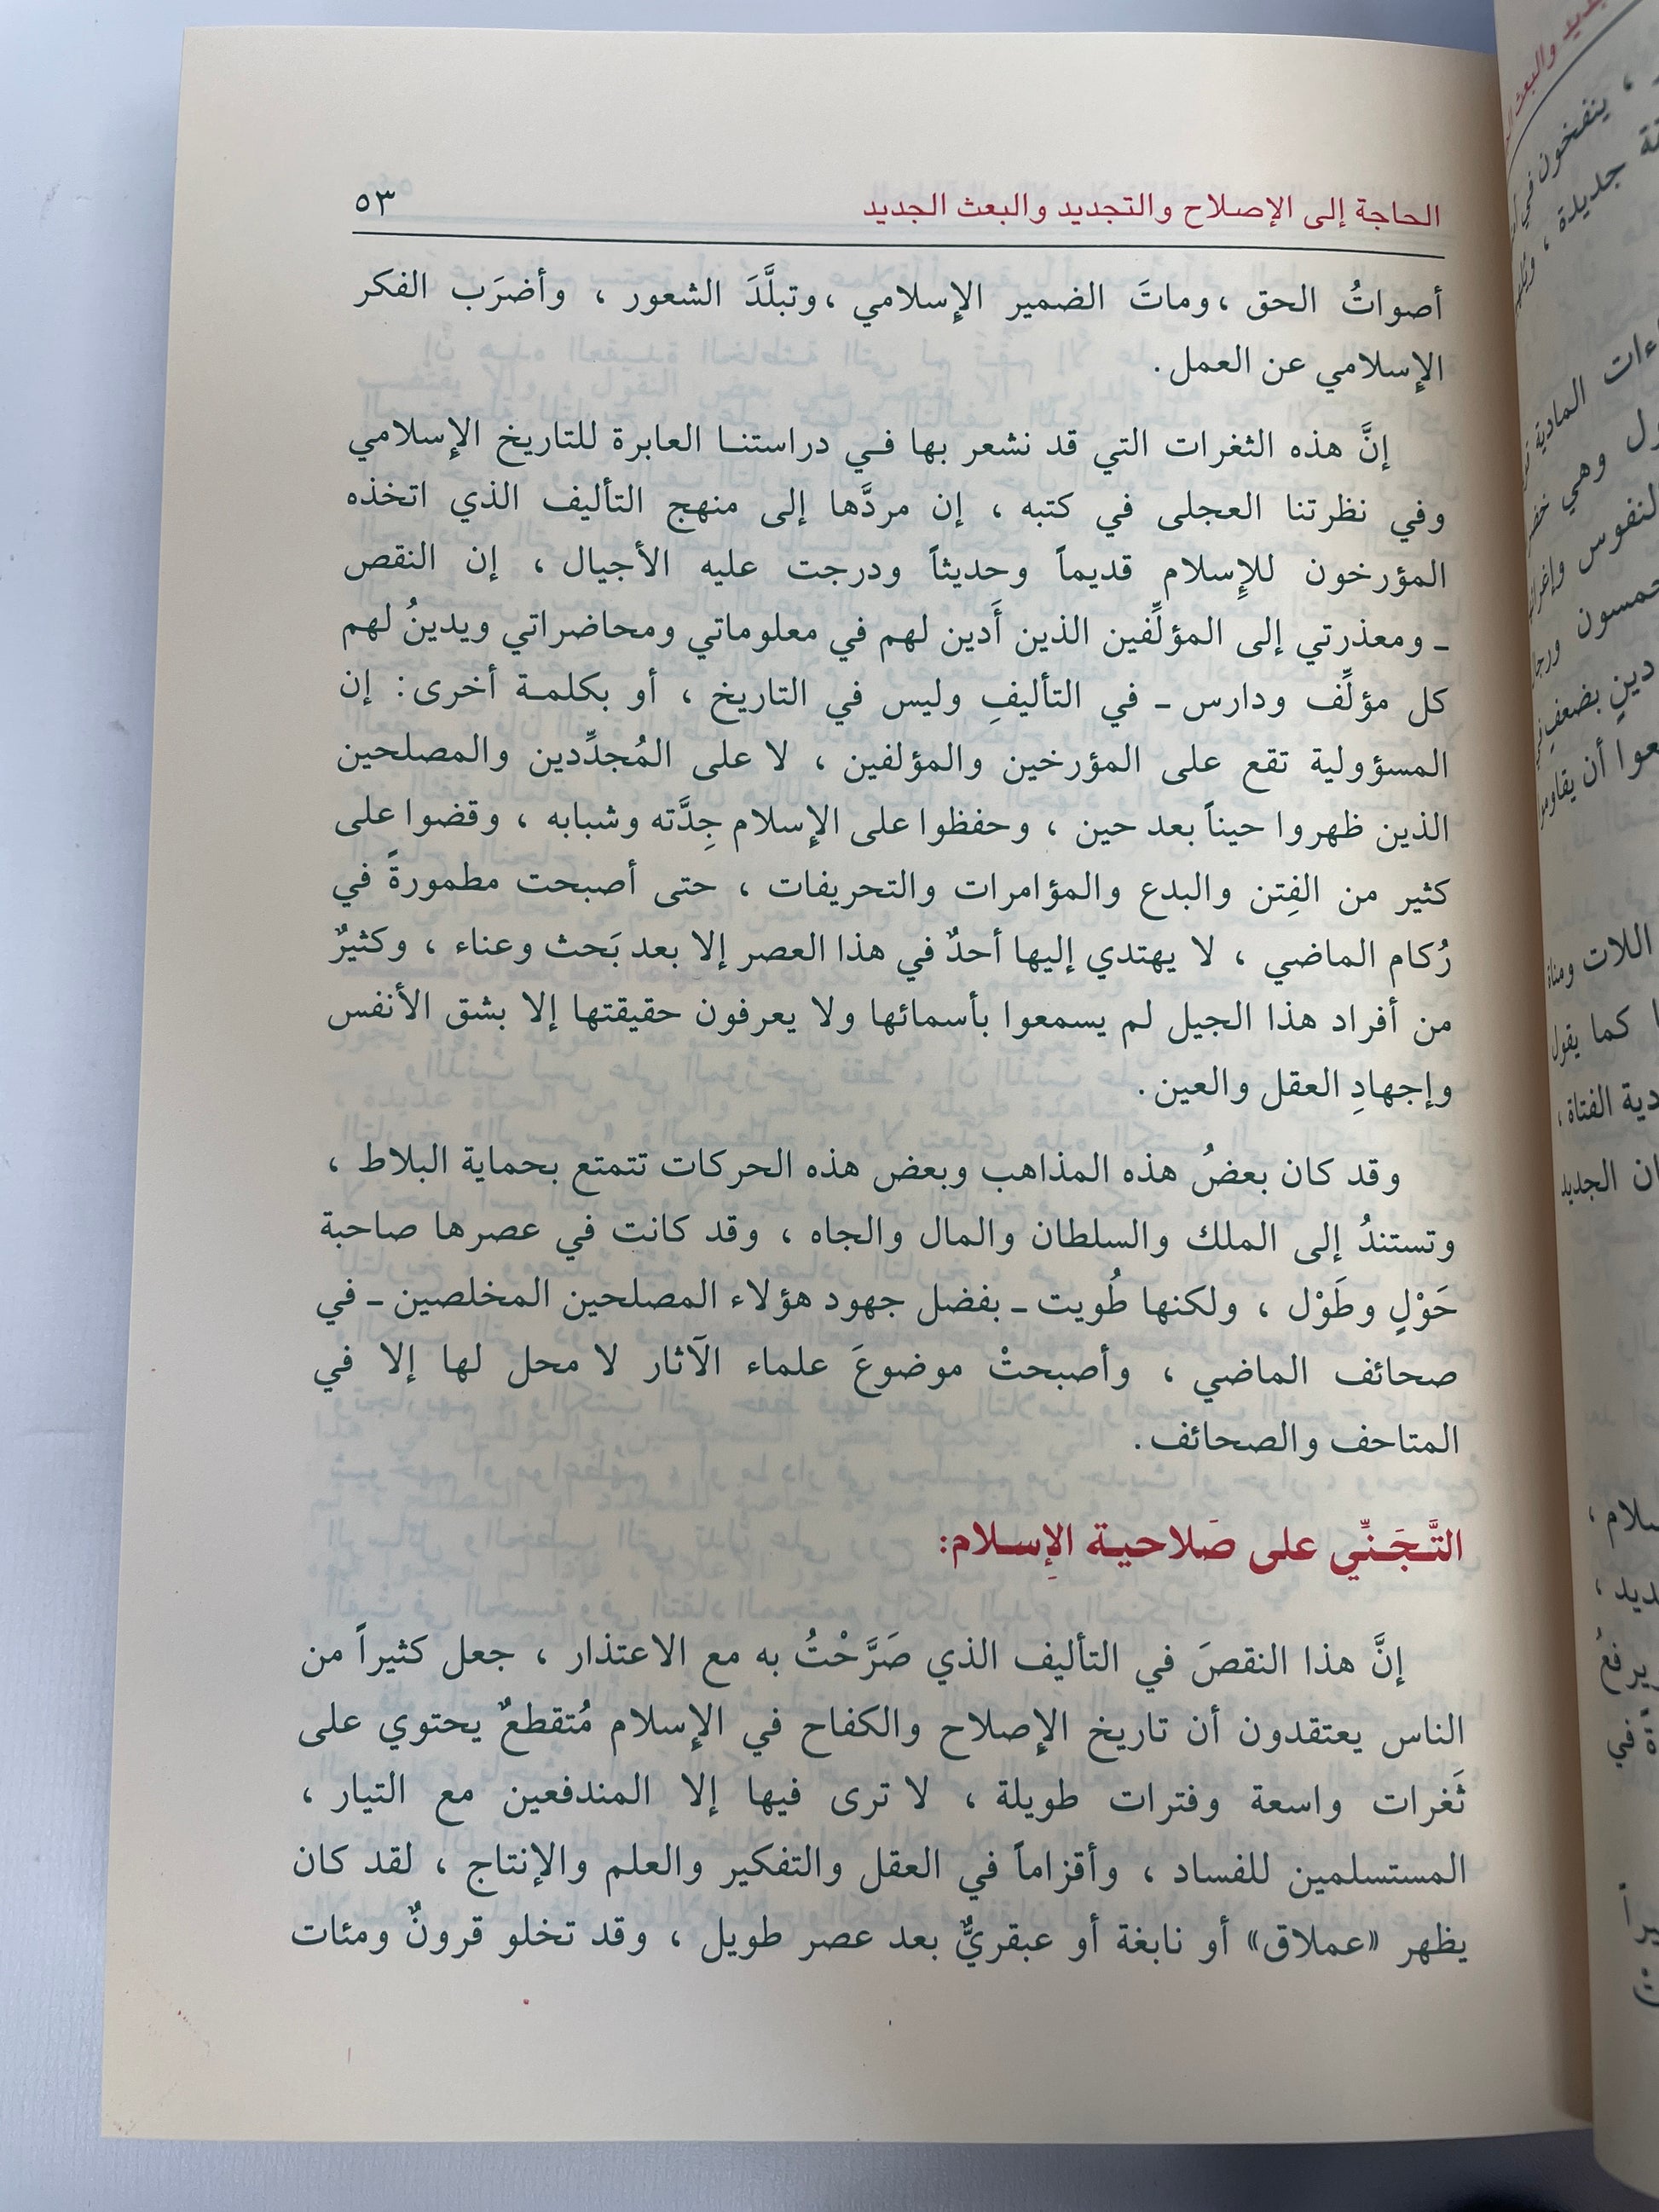 الحاجة إلى الإصلاح والتجديد والبعث الجديد ٥٣
أصواتُ الحق ، وماتَ الضمير الإسلامي ، وتبلَّدَ الشعور ، وأضرَب الفكر
الإسلامي عن العمل .
إنَّ هذه الثغرات التي قد نشعر بها في دراستنا العابرة للتاريخ الإسلامي
وفي نظرتنا العجلى في كتبه ، إن مردَّها إلى منهج التأليف الذي اتخذه
المؤرخون للإسلام قديماً وحديثاً ودرجت عليه الأجيال ، إن النقص
ـ ومعذرتي إلى المؤلِّفين الذين أَدين لهم في معلوماتي ومحاضراتي ويدينُ لهم
كل مؤلِّف ودارس ـ في التأليفِ وليس في التاريخ ، أو بكلمة أخرى : إن
المسؤولية تقع على المؤرخين والمؤلفين ، لا على المُجدِّدين والمصلحين
الذين ظهروا حيناً بعد حين ، وحفظوا على الإسلام جِدَّته وشبابه ، وقضوا على
كثير من الفِتن والبدع والمؤامرات والتحريفات ، حتى أصبحت مطمورةً في
رُكام الماضي ، لا يهتدي إليها أحدٌ في هذا العصر إلا بعد بَحث وعناء ، وكثيرٌ
من أفراد هذا الجيل لم يسمعوا بأسمائها ولا يعرفون حقيقتها إلا بشق الأنفس
وإجهادِ العقل والعين .
وقد كان بعضُ هذه المذاهب وبعض هذه الحركات تتمتع بحماية البلاط ،
وتستندُ إلى الملك والسلطان والمال والجاه ، وقد كانت في عصرها صاحبة
حَوْلٍ وطَوْل ، ولكنها طُويت ـ بفضل جهود هؤلاء المصلحين المخلصين ـ في
صحائف الماضي ، وأصبحتْ موضوعَ علماء الآثار لا محل لها إلا في
المتاحف والصحائف .
التَّجَنِّي على صَلاحية الإسلام:
إنَّ هذا النقصَ في التأليف الذي صَرَّحْتُ به مع الاعتذار ، جعل كثيراً من
الناس يعتقدون أن تاريخ الإصلاح والكفاح في الإسلام مُتقطعٌ يحتوي على
ثَغرات واسعة وفترات طويلة ، لا ترى فيها إلا المندفعين مع التيار ،
المستسلمين للفساد ، وأقزاماً في العقل والتفكير والعلم والإنتاج ، لقد كان
يظهر «عملاق» أو نابغة أو عبقريٌّ بعد عصر طويل ، وقد تخلو قرونٌ ومئات